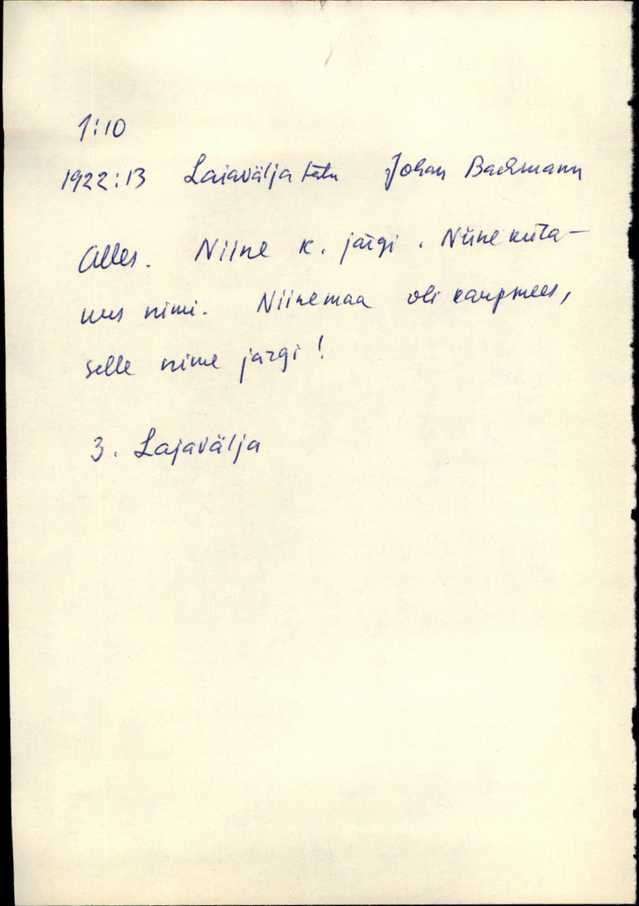 1:10
1922:13 Laiavälja talu Johan Backmann
Alles. Niine k. järgi. Niine kuta-
uus nimi. Niinemaa oli kaupmees,
selle nime järgi!
3. Lajavälja